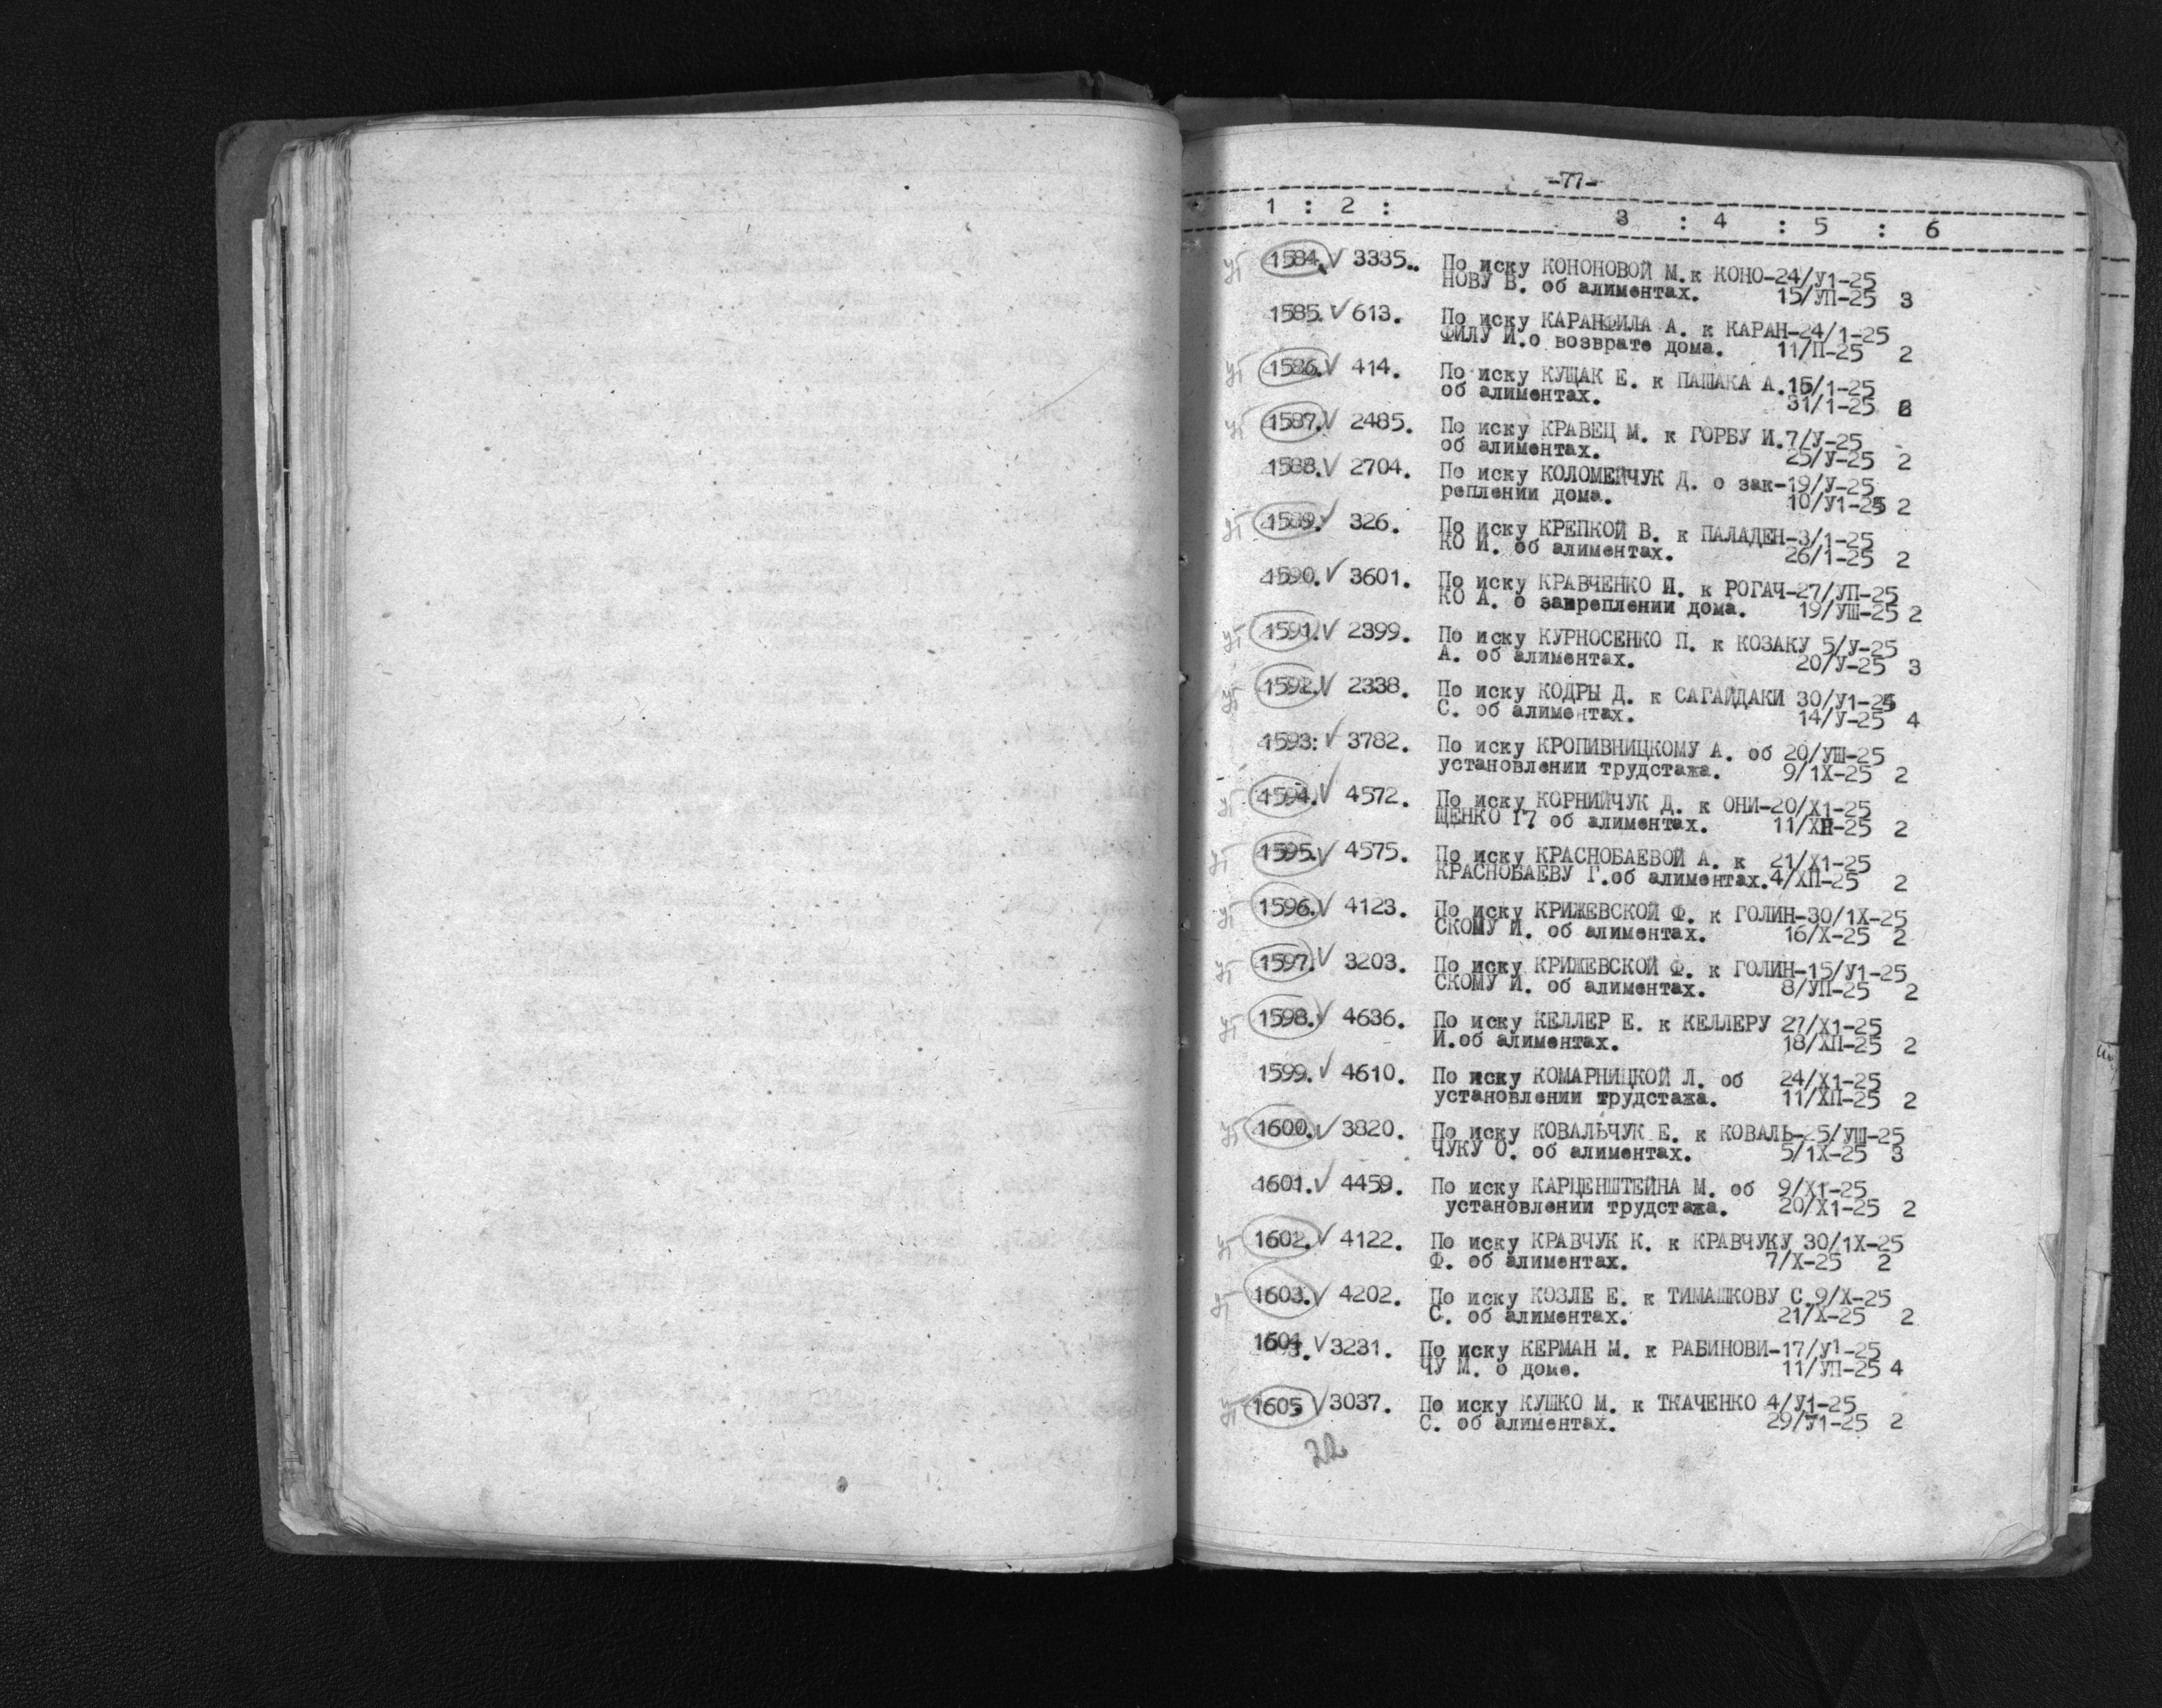 -77-
1 : 2 : 3 : 4 : 5 : 6
1584. √ 3335.. По иску КОНОНОВОЙ М.к КОНО-24/У1-25
НОВУ В. об алиментах. 15/УП-25 3
1585. √ 613. По иску КАРАНФИЛА А. к КАРАН-24/1-25
ФИЛУ И.о возврате дома. 11/П-25 2
1586. √ 414. По иску КУЩАК Е. к ПАШАКА А.15/1-25
об алиментах. 31/1-25
1587. √ 2485. По иску КРАВЕЦ М. к ГОРБУ И.7/У-25
об алиментах. 25/У-25 2
1588. √ 2704. По иску КОЛОМЕЙЧУК Д. о зак-19/У-25
реплении дома. 10/У1-25 2
1589. √ 326. По иску КРЕПКОЙ В. к ПАЛАДЕН-3/1-25
КО И. об алиментах. 26/1-25 2
1590. √ 3601. По иску КРАВЧЕНКО И. к РОГАЧ-27/УП-25
КО А. о закреплении дома. 19/УШ-25 2
1591. √ 2399. По иску КУРНОСЕНКО П. к КОЗАКУ 5/У-25
А. об алиментах. 20/У-25 3
1592. √ 2338. По иску КОДРЫ Д. к САГАЙДАКИ 30/У1-24
С. об алиментах. 14/У-25 4
1593: √ 3782. По иску КРОПИВНИЦКОМУ А. об 20/УШ-25
установлении трудстажа. 9/1Х-25 2
1594. √ 4572. По иску КОРНИЙЧУК Д. к ОНИ-20/Х1-25
ЩЕНКО Г7 об алиментах. 11/ХП-25 2
1595. √ 4575. По иску КРАСНОБАЕВОЙ А. к 21/Х1-25
КРАСНОБАЕВУ Г.об алиментах.4/ХП-25 2
1596. √ 4123. По иску КРИЖЕВСКОЙ Ф. к ГОЛИН-30/1Х-25
СКОМУ И. об алиментах. 16/Х-25 2
1597. √ 3203. По иску КРИЖЕВСКОЙ Ф. к ГОЛИН-15/У1-25
СКОМУ И. об алиментах. 8/УП-25 2
1598. √ 4636. По иску КЕЛЛЕР Е. к КЕЛЛЕРУ 27/Х1-25
И.об алиментах. 18/ХП-25 2
1599. √ 4610. По иску КОМАРНИЦКОЙ Л. об 24/Х1-25
установлении трудстажа. 11/ХП-25 2
1600. √ 3820. По иску КОВАЛЬЧУК Е. к КОВАЛЬ-25/УШ-25
ЧУКУ О. об алиментах. 5/1Х-25 3
1601. √ 4459. По иску КАРЦЕНШТЕЙНА М. об 9/Х1-25
установлении трудстажа. 20/Х1-25 2
1602. √ 4122. По иску КРАВЧУК К. к КРАВЧУКУ 30/1Х-25
Ф. об алиментах. 7/Х-25 2
1603. √ 4202. По иску КОЗЛЕ Е. к ТИМАШКОВУ С.9/Х-25
С. об алиментах. 21/Х-25 2
1604. √ 3231. По иску КЕРМАН М. к РАБИНОВИ-17/У1-25
ЧУ М. о доме. 11/УП-25 4
1605 √ 3037. По иску КУШКО М. к ТКАЧЕНКО 4/У1-25
С. об алиментах. 29/У1-25 2
22